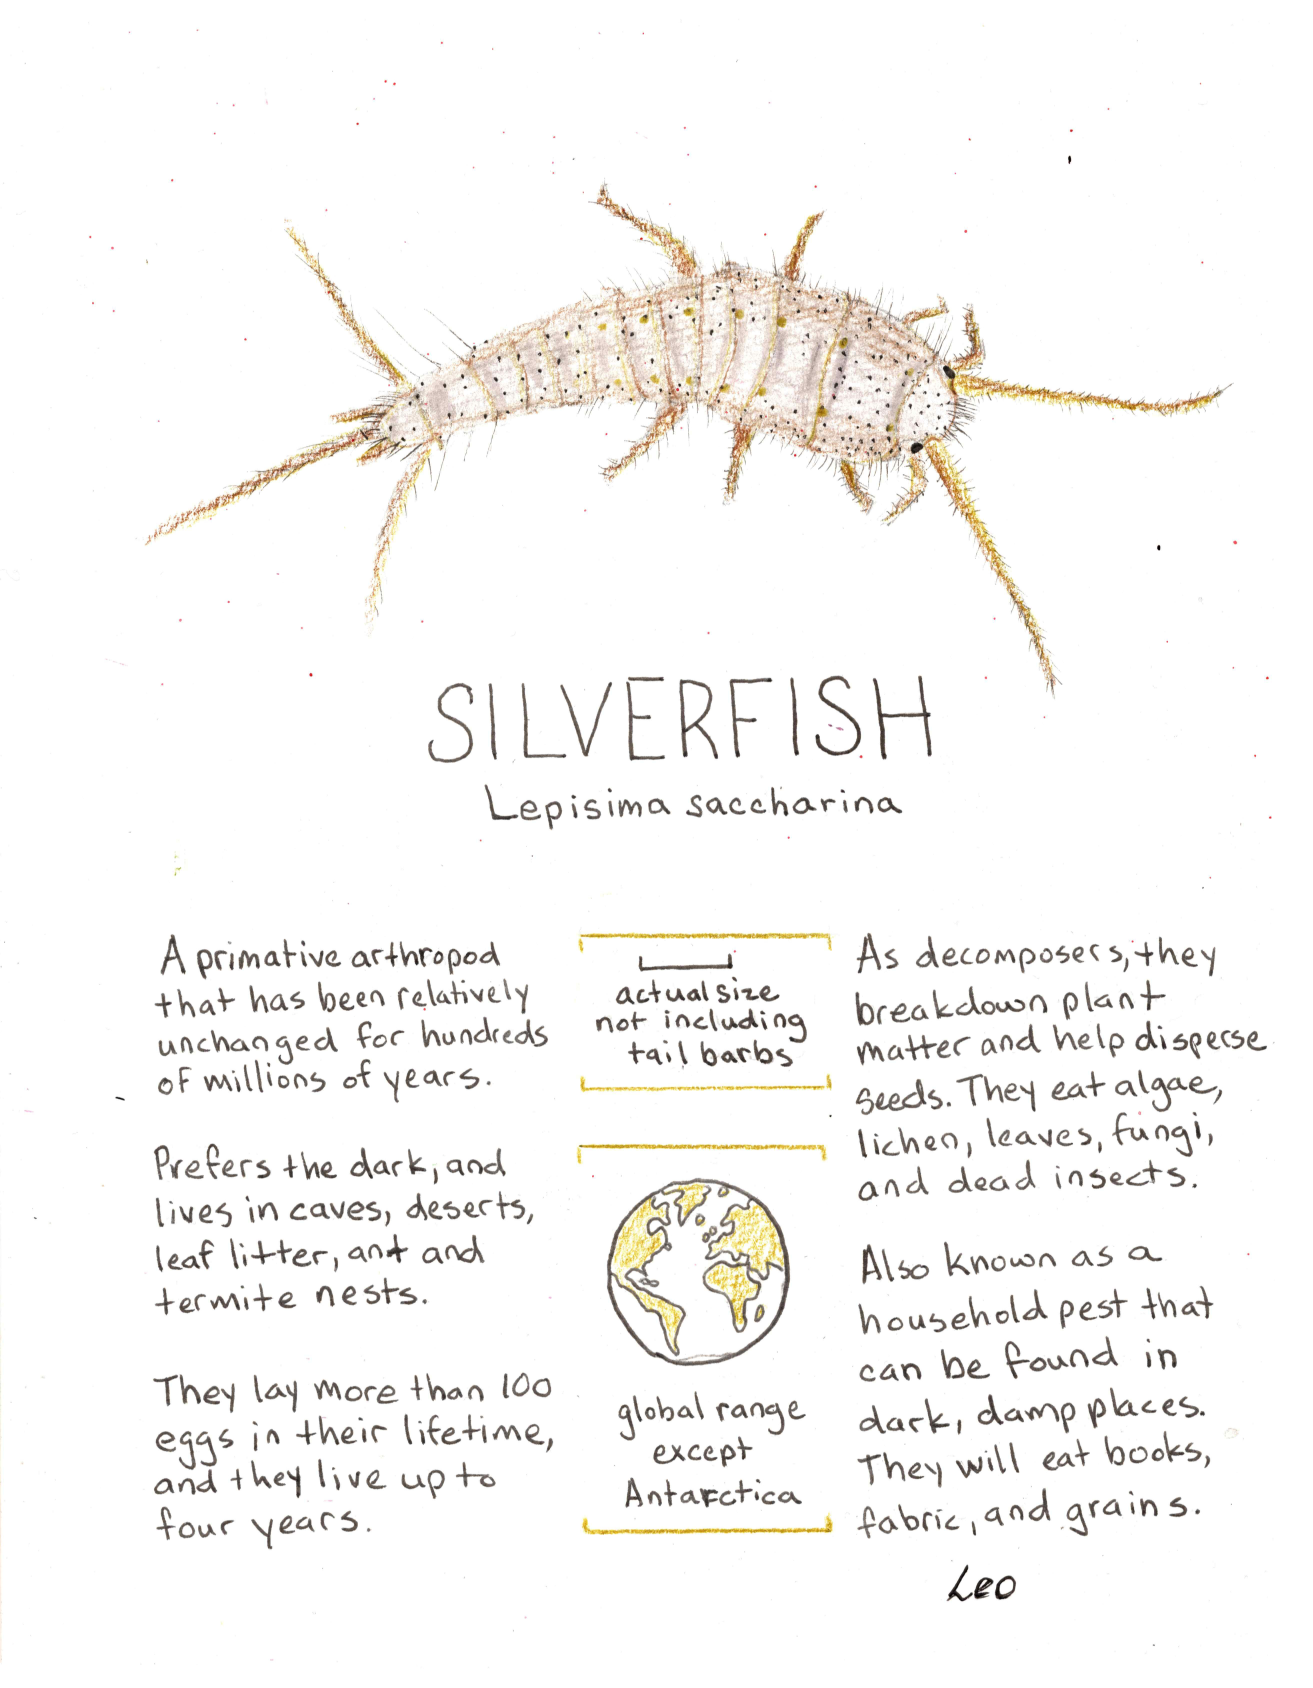 SILVERFISH
Lepisima saccharina
A primative arthropod
that has been relatively
unchanged for hundreds
of millions of years.
Prefers the dark, and
lives in caves, deserts,
leaf litter, ant and
termite nests.
They lay more than 100
eggs in their lifetime,
and they live up to
four years.
actual size
not including
tail barbs
global range
except
Antarctica
As decomposers, they
breakdown plant
matter and help disperse
seeds. They eat algae,
lichen, leaves, fungi,
and dead insects.
Also known as a
household pest that
can be found in
dark, damp places.
They will eat books,
fabric, and grains.
Leo